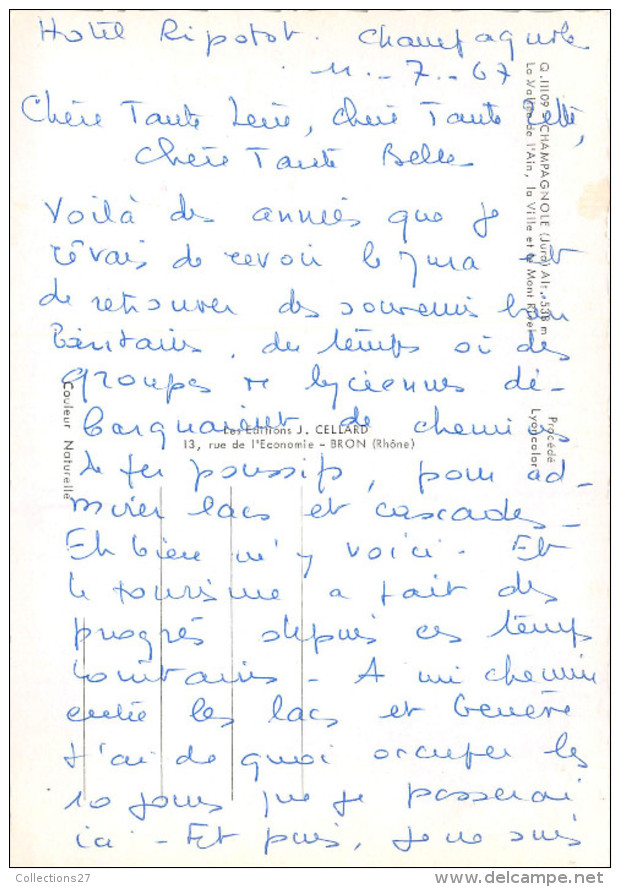 Hotel Ripotot. Champagnole
11.-7.-67
Chère Tante Chère Tante
Chère Tante Belle
Voilà des années que je
rêvais de revoir le Jura et
de retrouver des souvenirs
du temps où des
groupes de lycéennes dé-
barquaient de chemins
de fer poussifs, pour ad-
mirer lacs et cascades -
Eh bien m'y voici - Et
le tourisme a fait des
progrès depuis ces temps
lointains - A mi chemin
entre les lacs et Genève
j'ai de quoi occuper les
10 jours que je passerai
ici - Et puis, je ne suis
Q. 11109 - CHAMPAGNOLE (Jura) Alt. 538 m
La Vallée de l'Ain, la Ville et le Mont Rivel
Procédé
Lyopcolor
Couleur Naturelle
Les Editions J. CELLARD
13, rue de l'Economie - BRON (Rhône)
Collections27
delcampe.net